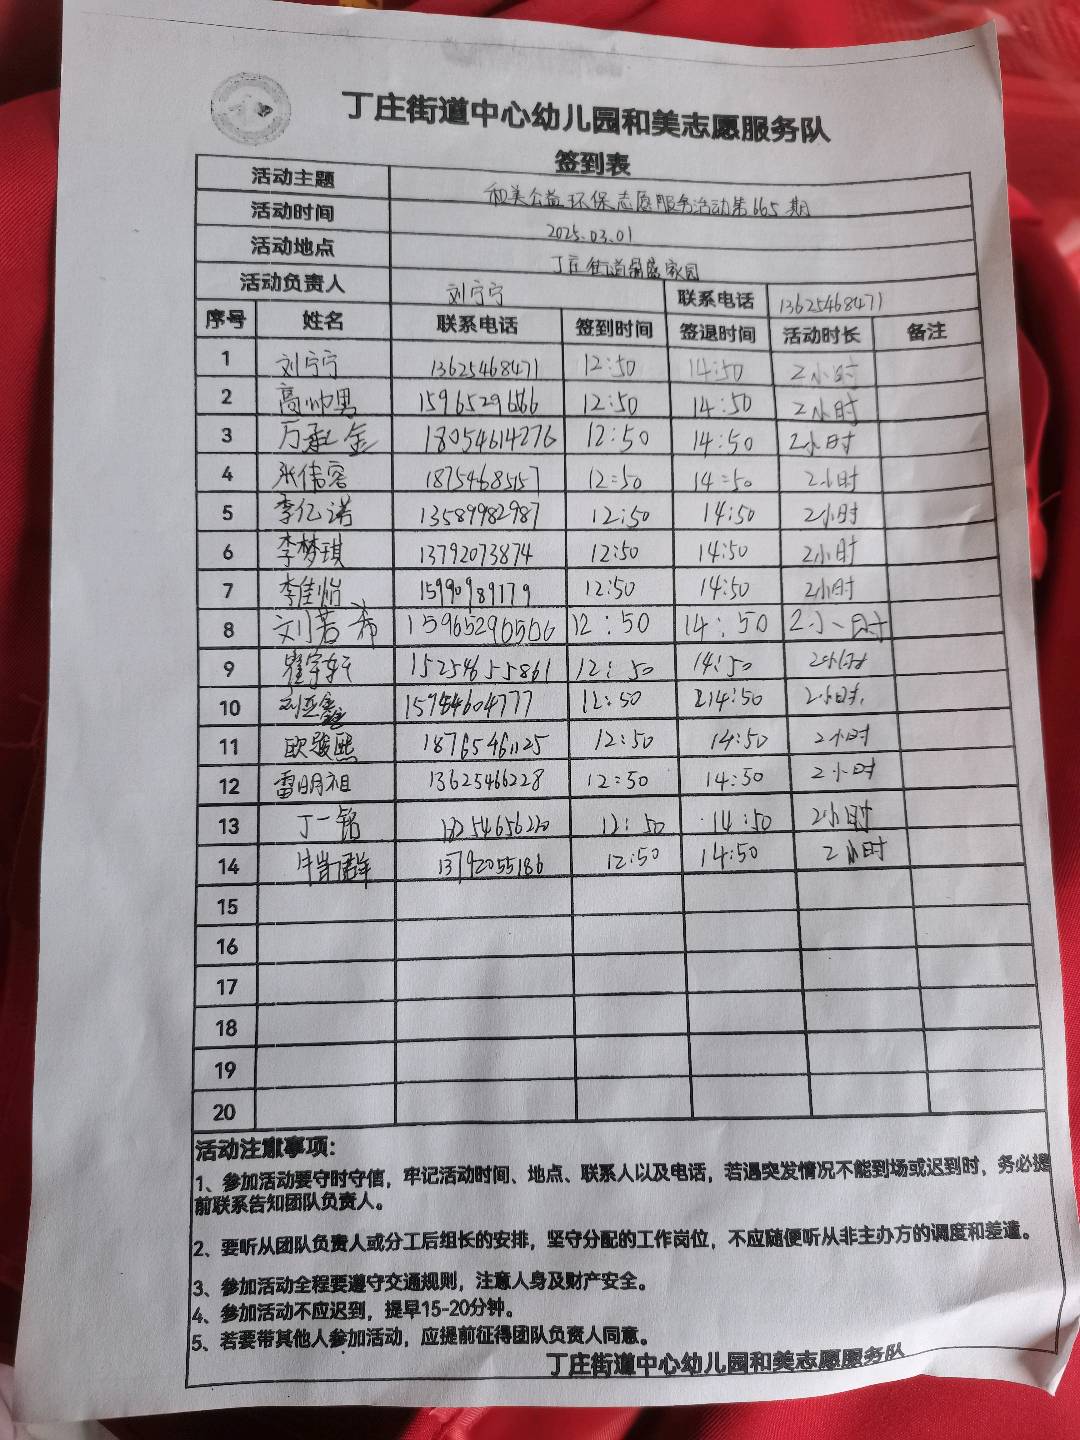 丁庄街道中心幼儿园和美志愿服务队
签到表
活动主题 和美公益环保志愿服务活动第665期
活动时间 2025.03.01
活动地点 丁庄街道 家园
活动负责人 刘宁宁 联系电话 13625468471
序号 姓名 联系电话 签到时间 签退时间 活动时长 备注
1 刘宁宁 13625468471 12:50 14:50 2小时
2 高帅男 12:50 14:50 2小时
3 万承金 18054614276 12:50 14:50 2小时
4 张伟容 12:50 14:50 2小时
5 李亿诺 13589982987 12:50 14:50 2小时
6 李梦琪 13792073874 12:50 14:50 2小时
7 李佳怡 15990989179 12:50 14:50 2小时
8 刘若希 12:50 14:50 2小时
9 崔宇轩 15254655861 12:50 14:50 2小时
10 刘亚鑫 12:50 14:50 2小时
11 欧骏熙 18765461125 12:50 14:50 2小时
12 雷明祖 13625466228 12:50 14:50 2小时
13 丁一铭 18254656220 12:50 14:50 2小时
14 13792055186 12:50 14:50 2小时
15
16
17
18
19
20
活动注意事项：
1、参加活动要守时守信，牢记活动时间、地点、联系人以及电话，若遇突发情况不能到场或迟到时，务必提
前联系告知团队负责人。
2、要听从团队负责人或分工后组长的安排，坚守分配的工作岗位，不应随便听从非主办方的调度和差遣。
3、参加活动全程要遵守交通规则，注意人身及财产安全。
4、参加活动不应迟到，提早15-20分钟。
5、若要带其他人参加活动，应提前征得团队负责人同意。
丁庄街道中心幼儿园和美志愿服务队